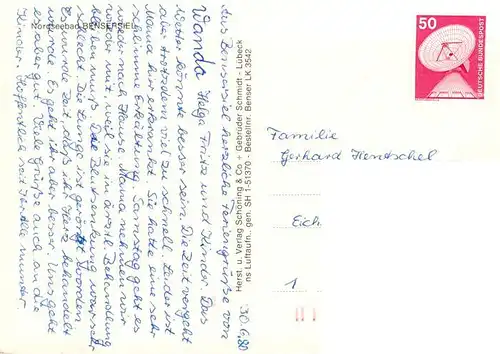 Nordseebad BENSERSIEL
30.6.80
Aus Bensersiel herzliche Feriengrüße von
Wanda Helga Fritz und Kinder. Das
Wetter könnte besser sein. Die Zeit vergeht
aber trotzdem viel zu schnell. Leider ist
Mama hier erkrankt. Sie hatte eine sehr
schlimme Erkältung. Samstag geht es
wieder nach Hause. Mama nehmen wir
mit weil sie in ärztl. Behandlung
bleiben muß. Die Blutsenkung war sehr
schlecht. Die Lunge ist geröngt worden
Zeit, daß ihr Herz behandelt
wurde. Es geht ihr aber besser. Uns geht
es aber gut. Viele Grüße auch an die
Kinder. Hoffentlich seit Ihr alle munter
Herst. u. Verlag Schöning & Co + Gebrüder Schmidt - Lübeck
ns Luftaufn. gen. SH 1-51370 - Bestellnr. Benser LK 3542
50
DEUTSCHE BUNDESPOST
Familie
Gerhard Hentschel
Eich.
1